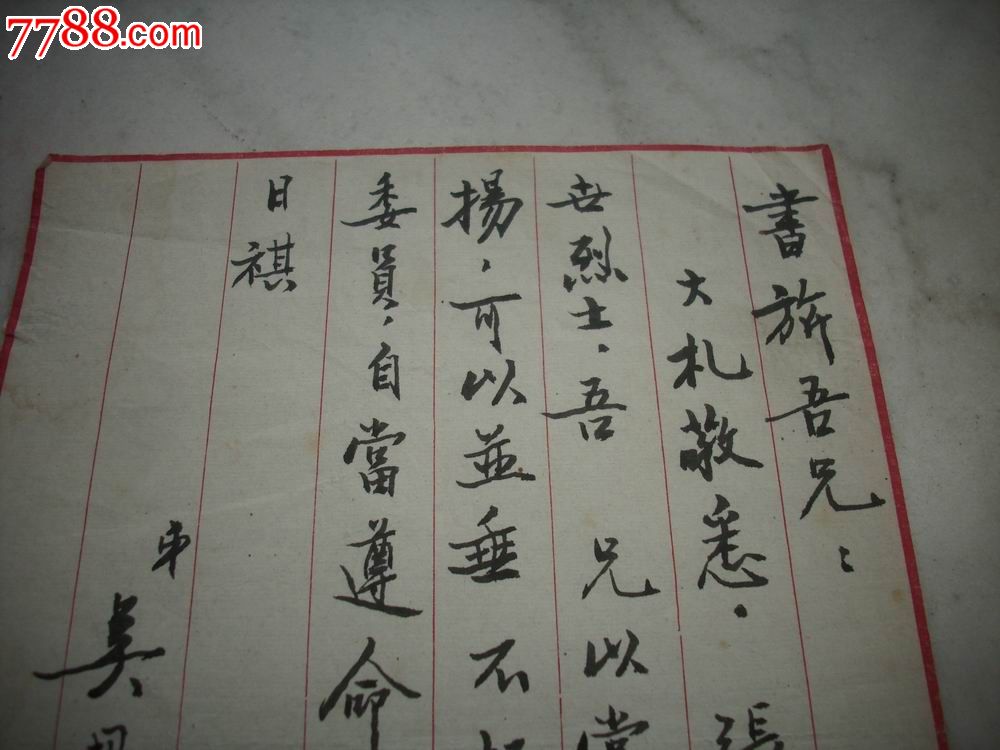 7788.com
書旂吾兄：
大札敬悉．張
世烈士．吾 兄以當
揚．可以並垂不
委員，自當遵命
日祺
弟
吳